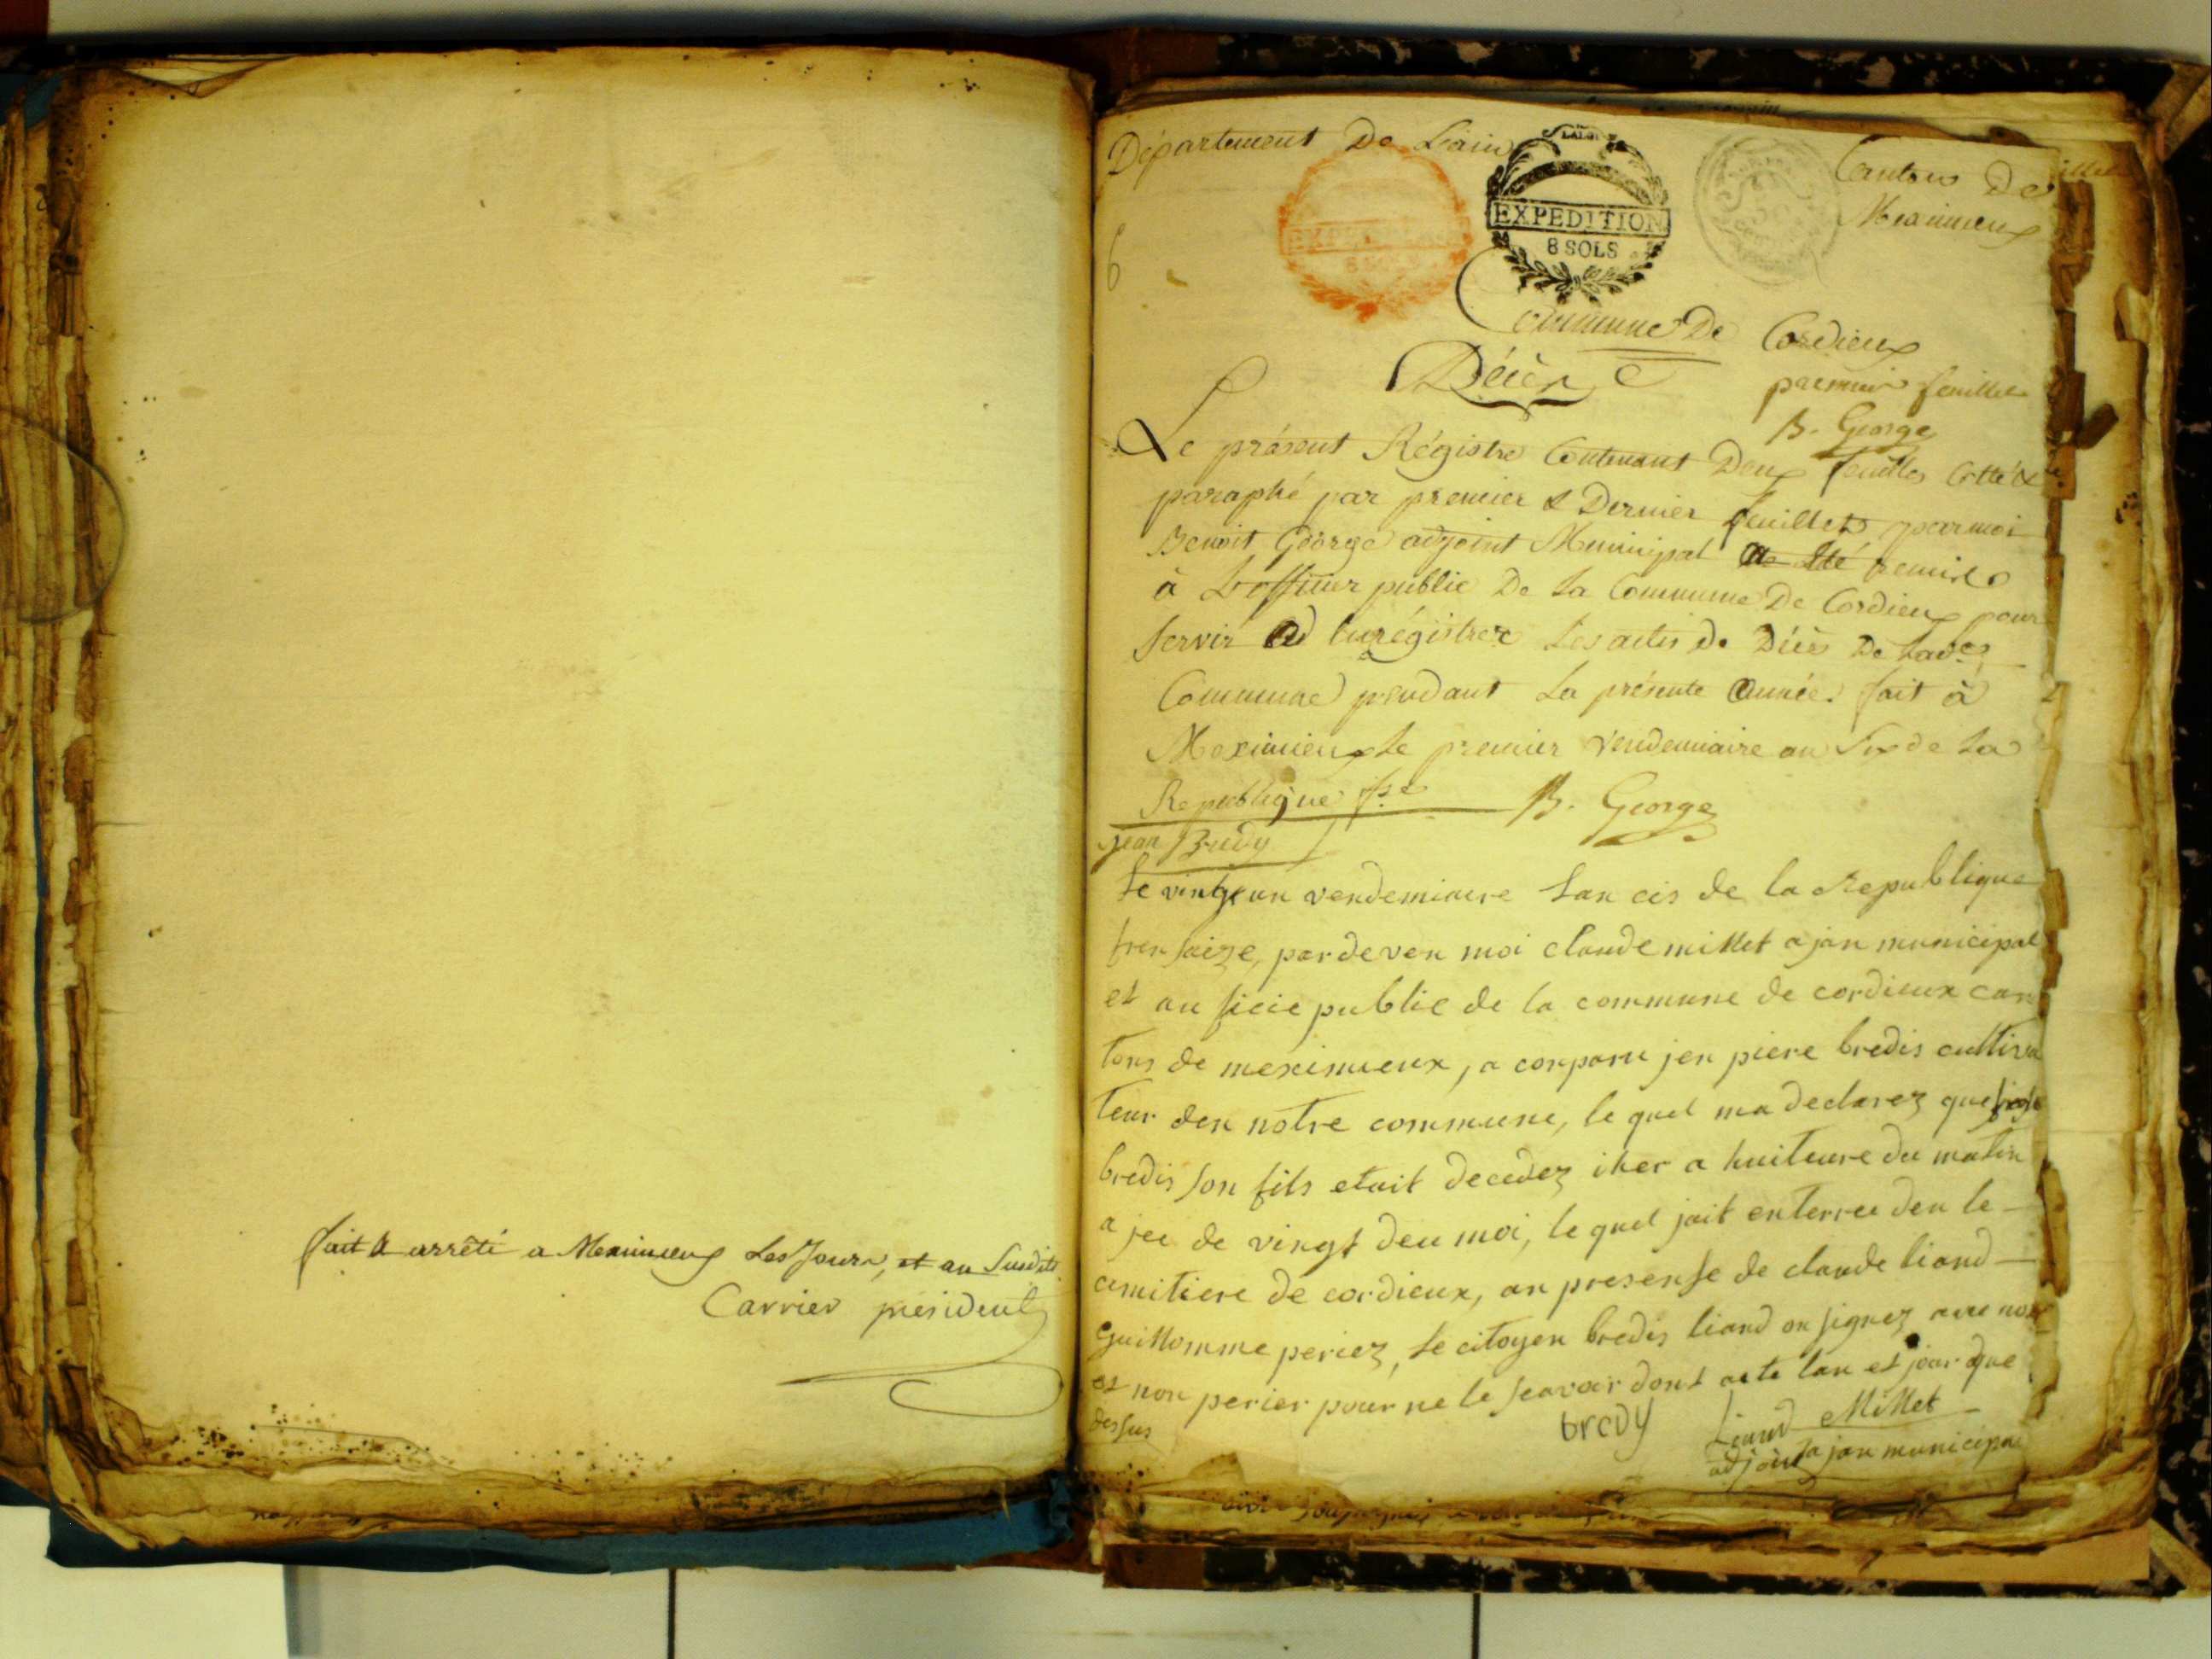 fait & arrêté a Meximieux Les Jours, et an Susdits
Carrier président
Département De Lain
Canton De
Meximieux
LA LOI
EXPEDITION
8 SOLS
6
Commune De Cordieux
Décès
premier feuillet
B. George
Le présent Régistre Contenant Deux feuilles Cotté &
paraphé par premier & Dernier feuillets par moi
Benoit George adjoint Municipal a été remis
à L'officier public De La Commune De Cordieux pour
servir a Enrégistrer Les actes de Décès De Lad.
Commune pendant La présente année. fait à
Meximieux Le premier vendemiaire an Six de La
Republique fse B. George
Jean Bredy
Le vingt un vendemiaire lan cis de la Republique
frensaize, par deven moi claude millet ajan municipal
et au ficie public de la commune de cordieux can
tons de meximieux, a conparu jen piere bredis cultiva
teur den notre commune, le quel ma declarez que
bredis son fils etait decedez iher a huiteure du matin
a jee de vingt deu moi, le quel jait enterree den le
cimitiere de cordieux, an presense de claude liand
guillomme periez, le citoyen bredis liand on signez avec
et non perier pour ne le seavoir dont acte lan et jour que
dessus
bredy
Liand Millet
adjoint ajan municipal